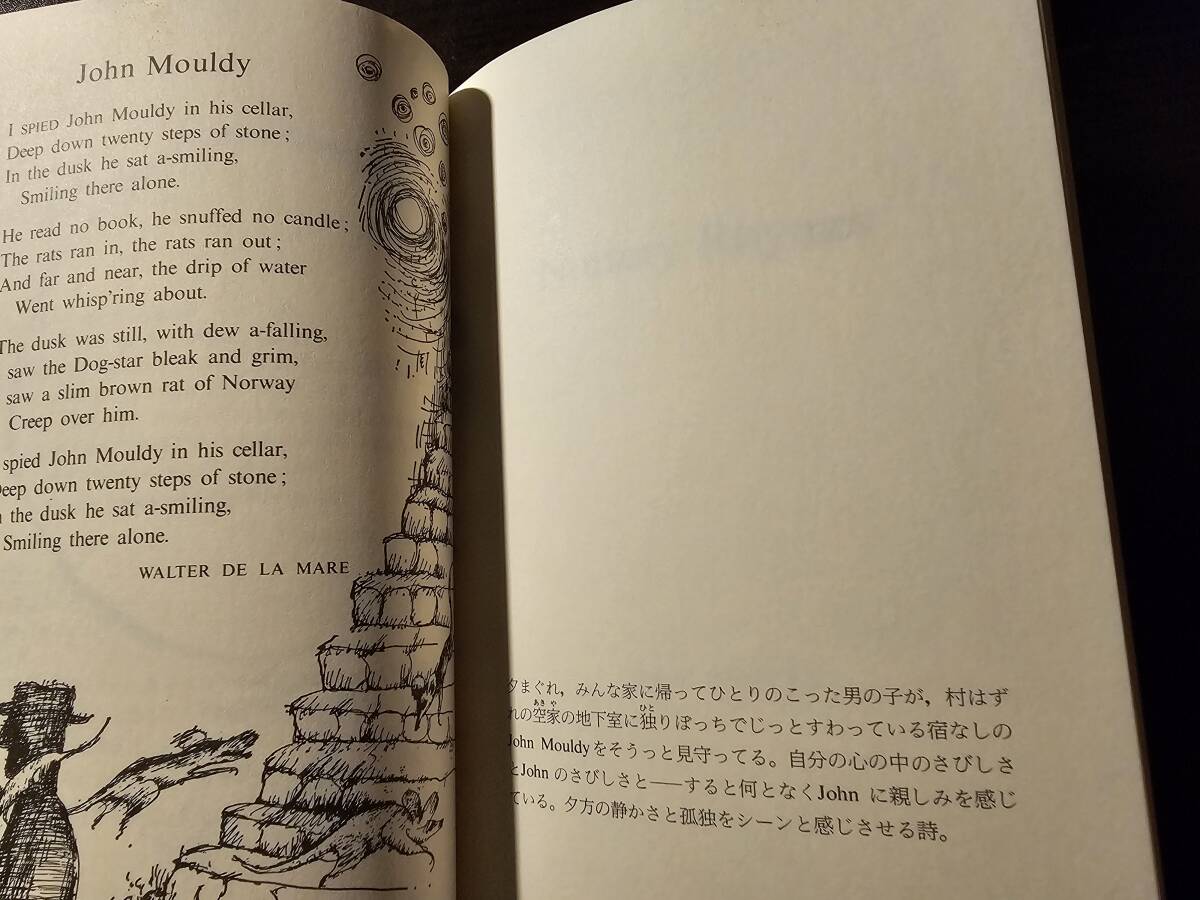 John Mouldy
I SPIED John Mouldy in his cellar,
Deep down twenty steps of stone;
In the dusk he sat a-smiling,
Smiling there alone.
He read no book, he snuffed no candle;
The rats ran in, the rats ran out;
And far and near, the drip of water
Went whisp'ring about.
The dusk was still, with dew a-falling,
saw the Dog-star bleak and grim,
saw a slim brown rat of Norway
Creep over him.
spied John Mouldy in his cellar,
Deep down twenty steps of stone;
the dusk he sat a-smiling,
Smiling there alone.
WALTER DE LA MARE
夕まぐれ，みんな家に帰ってひとりのこった男の子が，村はず
れの空家の地下室に独りぽっちでじっとすわっている宿なしの
John Mouldyをそうっと見守ってる。自分の心の中のさびしさ
とJohn のさびしさと――すると何となくJohn に親しみを感じ
ている。夕方の静かさと孤独をシーンと感じさせる詩。